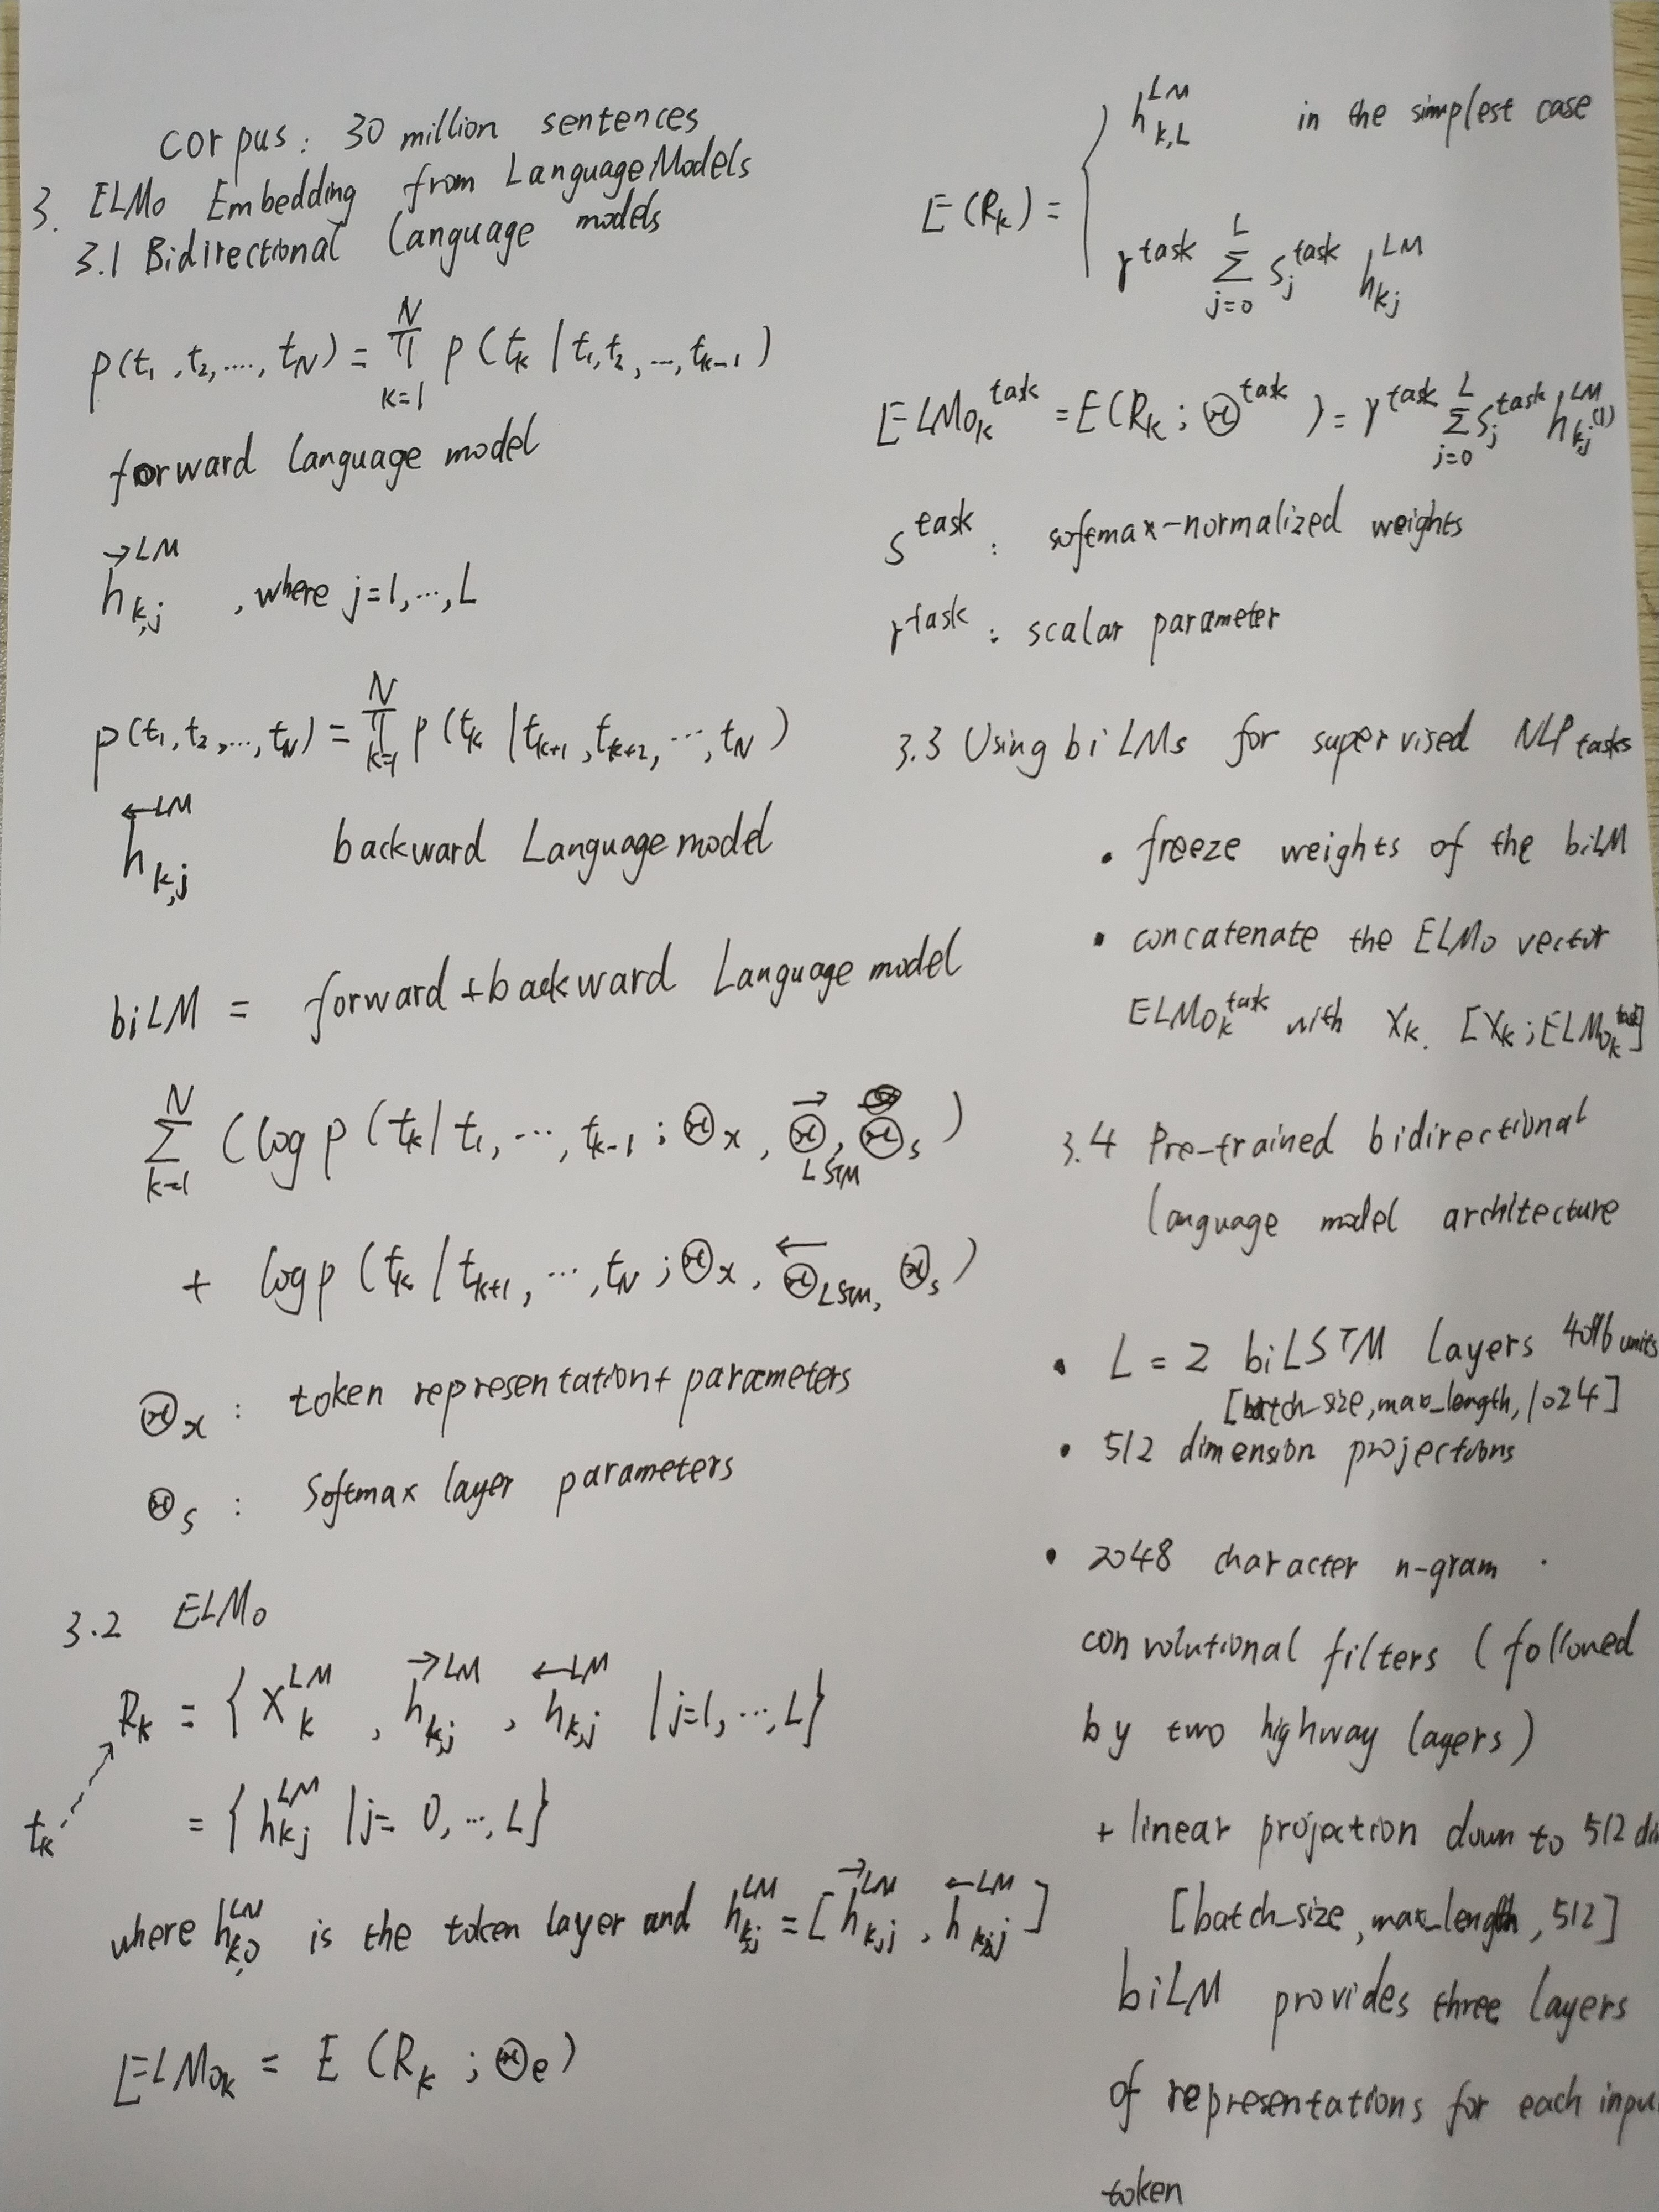 corpus: 30 million sentences
3. ELMo Embedding from Language Models
3.1 Bidirectional Language models
p(t₁, t₂, ...., t_N) = ∏_{k=1}^{N} p(t_k | t₁, t₂, ..., t_{k-1})
forward language model
→h_{k,j}^{LM}, where j=1, ..., L
p(t₁, t₂, ..., t_N) = ∏_{k=1}^{N} p(t_k | t_{k+1}, t_{k+2}, ..., t_N)
←h_{k,j}^{LM} backward Language model
biLM = forward + backward Language model
∑_{k=1}^{N} (log p(t_k | t₁, ..., t_{k-1}; Θ_x, →Θ_{LSTM}, Θ_s)
+ log p(t_k | t_{k+1}, ..., t_N; Θ_x, ←Θ_{LSTM}, Θ_s)
Θ_x : token representationt parameters
Θ_s : Softmax layer parameters
3.2 ELMo
R_k = {x_k^{LM}, →h_{k,j}^{LM}, ←h_{k,j}^{LM} | j=1, ..., L}
t_k = {h_{k,j}^{LM} | j= 0, ..., L}
where h_{k,0}^{LM} is the token layer and h_{k,j}^{LM} = [→h_{k,j}^{LM}, ←h_{k,j}^{LM}]
ELMo_k = E (R_k ; Θ_e)
h_{k,L}^{LM} in the simplest case
E(R_k) = {
γ^{task} ∑_{j=0}^{L} s_j^{task} h_{k,j}^{LM}
ELMo_k^{task} = E(R_k; Θ^{task}) = γ^{task} ∑_{j=0}^{L} s_j^{task} h_{k,j}^{LM} (1)
s^{task} : softmax-normalized weights
γ^{task} : scalar parameter
3.3 Using biLMs for supervised NLP tasks
• freeze weights of the biLM
• concatenate the ELMo vector
ELMo_k^{task} with x_k. [x_k; ELMo_k^{task}]
3.4 Pre-trained bidirectional
language model architecture
• L = 2 biLSTM layers 4096 units
[batch_size, max_length, 1024]
• 512 dimension projections
• 2048 character n-gram
convolutional filters (followed
by two highway layers)
+ linear projection down to 512 di
[batch_size, max_length, 512]
biLM provides three layers
of representations for each inpu
token